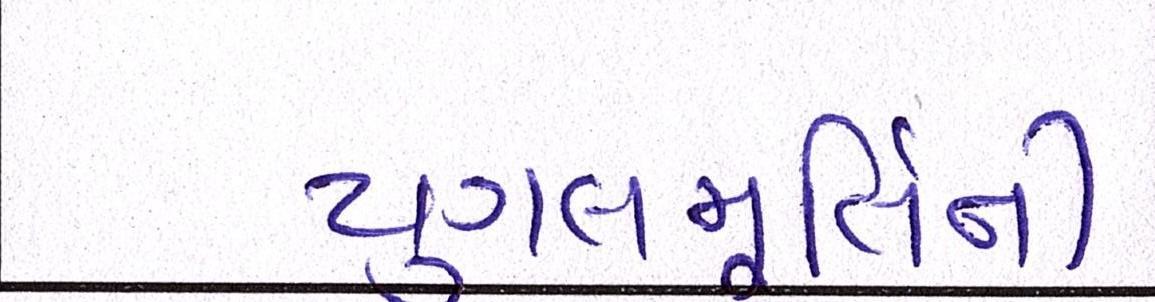 યુગલમૂર્તિની